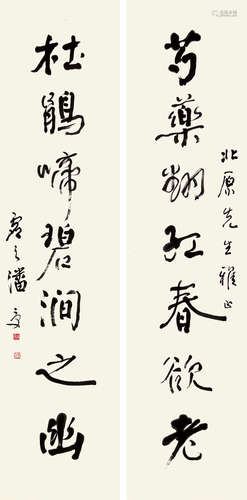 北原先生雅正
芍藥翻紅春欲老
杜鵑啼碧澗之幽
虛之潘受